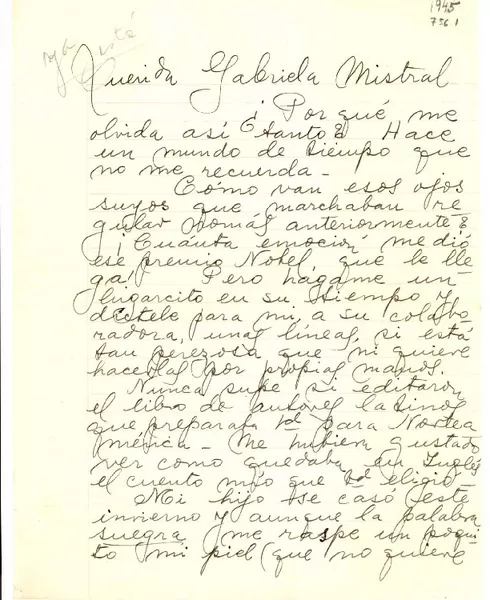 1945
736 1
Ya
Querida Gabriela Mistral
¿Por qué me
olvida así tanto? Hace
un mundo de tiempo que
no me recuerda -
Cómo van esos ojos
suyos que marchaban re
gular nomás anteriormente?
¡Cuánta emoción me dió
ese premio Nobel, que le lle
gá! Pero hágame un
lugarcito en su tiempo y
dictele para mi, a su colabo
radora, unas líneas, si está
tan perezosa que ni quiere
hacerlas por propias manos.
Nunca supe si editaron
el libro de autores latinos
que preparaba Ud para Nortea
mérica - Me hubiera gustado
ver como quedaba en Inglés
el cuento mío que Ud eligió -
Mi hijo se casó este
invierno y aunque la palabra
suegra me raspe un poqui
to mi piel (que no quiere